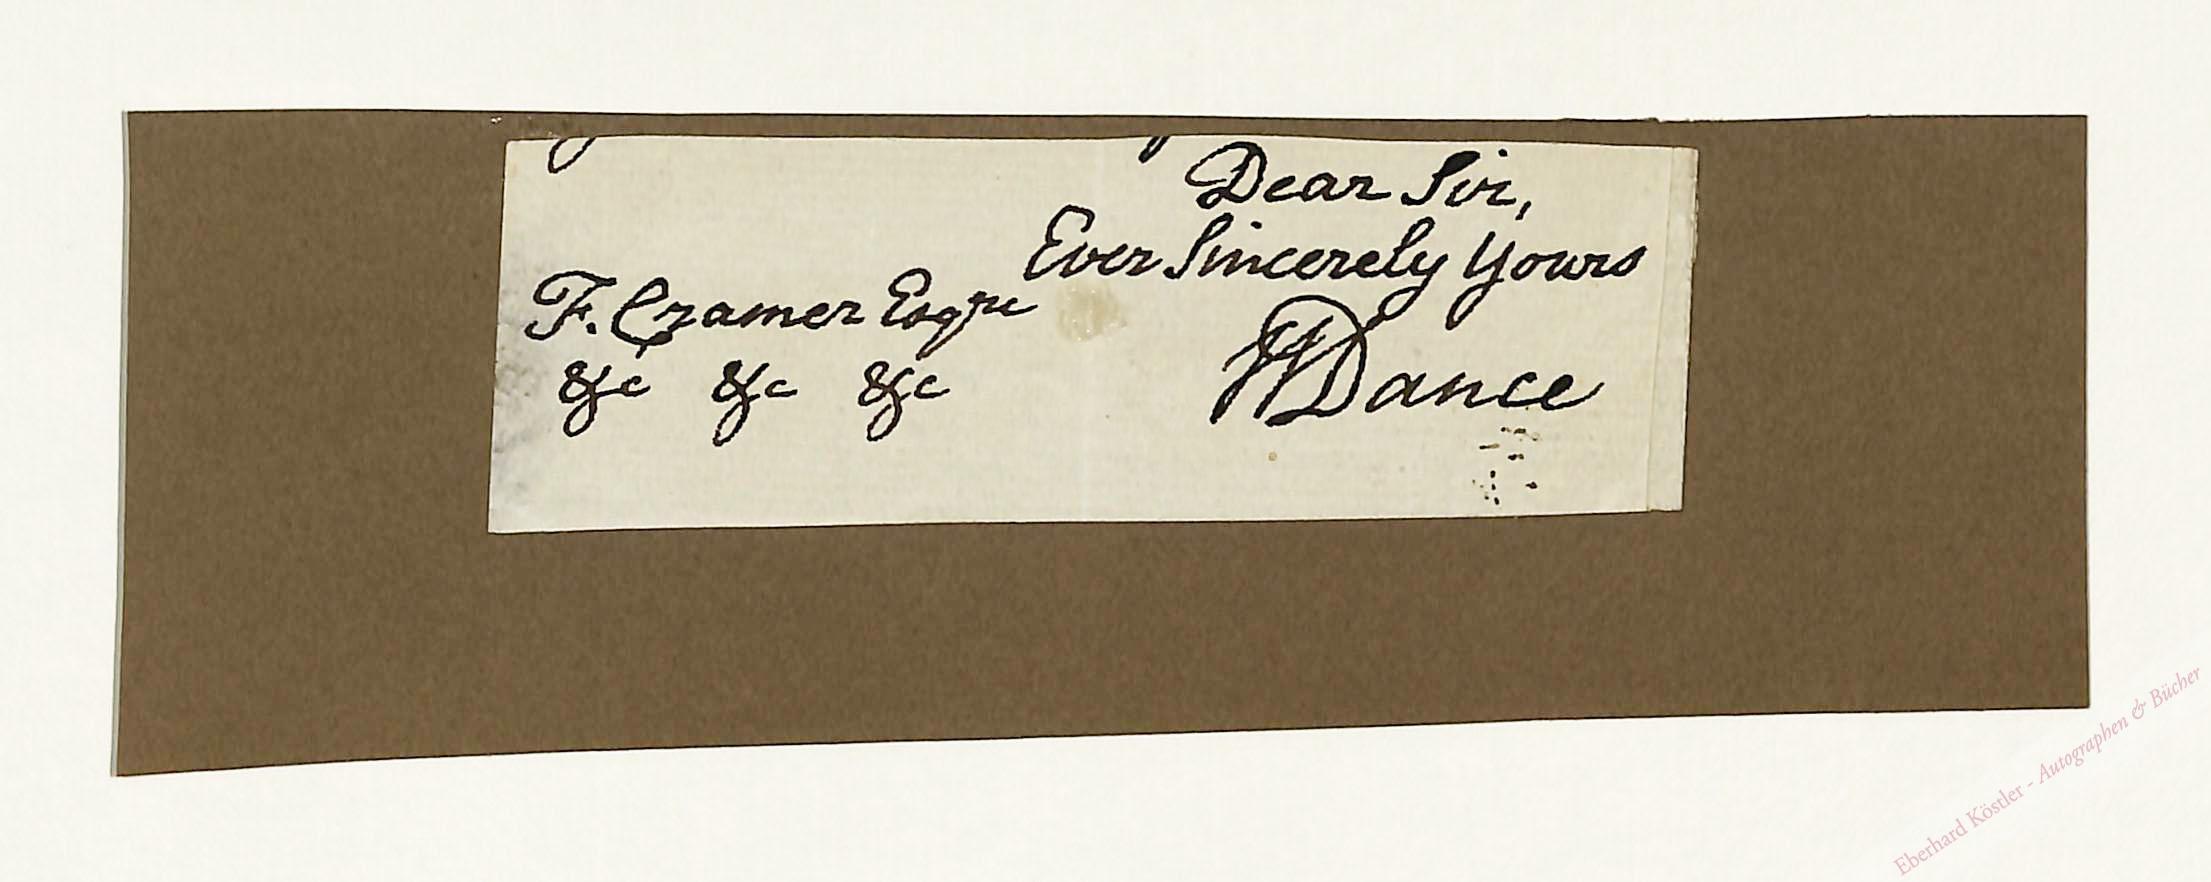 Dear Sir,
Ever Sincerely Yours
F. Cramer Esqre
&c &c &c
WDance
Eberhard Köstler - Autographen & Bücher